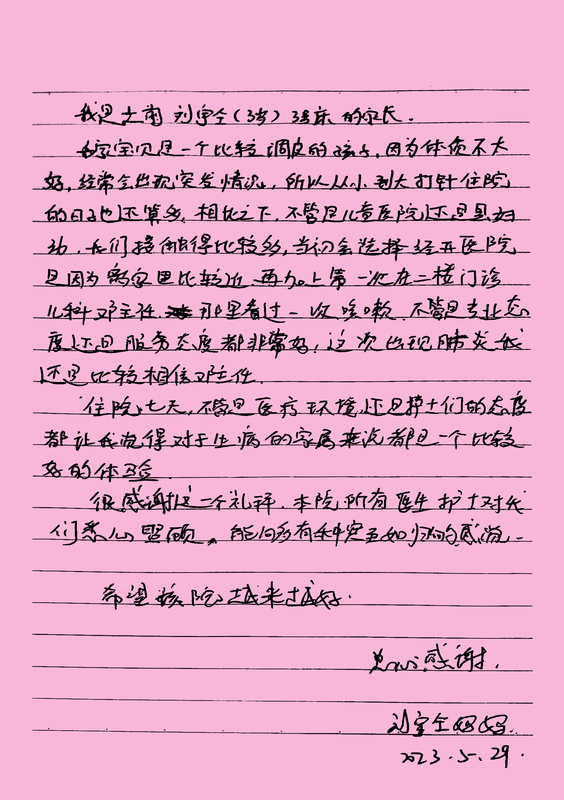 我是六南 刘宇全(3岁)38床 的家长.
我家宝贝是一个比较调皮的孩子,因为体质不大
好,经常会出现突发情况,所以从小到大打针住院
的日子也还算多,相比之下,不管是儿童医院还是县妇
幼,我们接触得比较多,当初会选择经开医院
是因为离家里比较近,再加上第一次在二楼门诊
儿科邓主任 那里看过一次咳嗽,不管是专业态
度还是服务态度都非常好,这次出现肺炎我
还是比较相信邓主任.
住院七天,不管是医疗环境还是护士们的态度
都让我觉得对于生病的家属来说都是一个比较
好的体验.
很感谢这一个礼拜,本院所有医生护士对我
们悉心照顾。能 有种宾至如归的感觉.
希望该院越来越好.
衷心感谢.
刘宇全妈妈.
2023.5.29.